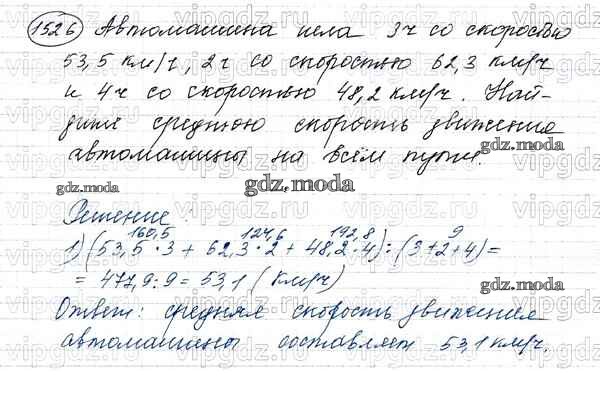 1526 Автомашина шла 3 ч со скоростью
53,5 км/ч, 2 ч со скоростью 62,3 км/ч
и 4 ч со скоростью 48,2 км/ч. Най-
дите среднюю скорость движения
автомашины на всём пути.
gdz.moda
gdz.moda
gdz.moda
Решение:
160,5 124,6 192,8 9
1) (53,5 · 3 + 62,3 · 2 + 48,2 · 4) : (3+2+4) =
= 477,9 : 9 = 53,1 (км/ч)
gdz.moda
Ответ: средняя скорость движения
автомашины составляет 53,1 км/ч.